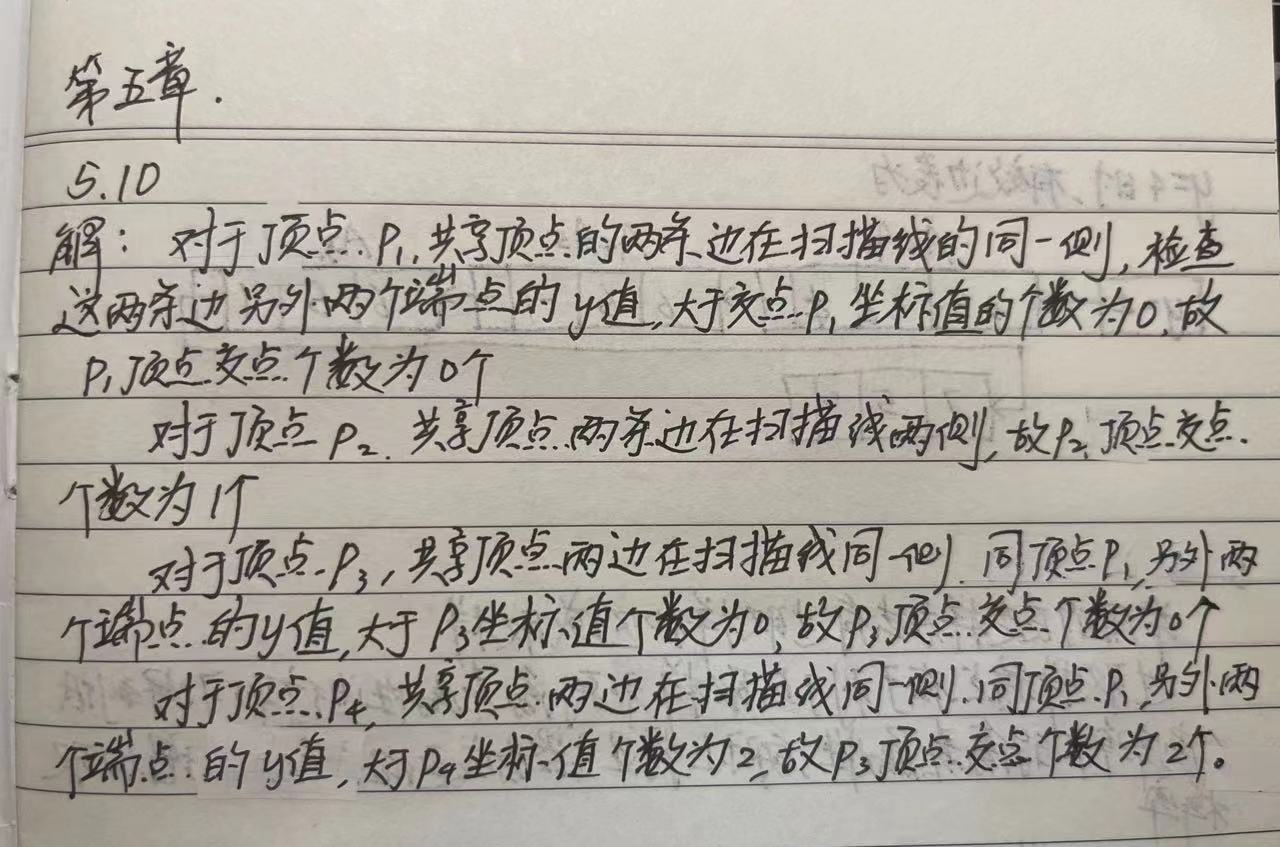 第五章.
5.10
解：对于顶点P₁,共享顶点的两条边在扫描线的同一侧,检查
这两条边另外两个端点的y值,大于交点P₁坐标值的个数为0,故
P₁顶点交点个数为0个
对于顶点P₂.共享顶点两条边在扫描线两侧,故P₂顶点交点.
个数为1个
对于顶点P₃,共享顶点两边在扫描线同一侧.同顶点P₁,另外两
个端点的y值,大于P₃坐标值个数为0,故P₃顶点交点个数为0个
对于顶点P₄,共享顶点两边在扫描线同一侧.同顶点P₁,另外两
个端点的y值,大于P₄坐标值个数为2,故P₃顶点交点个数为2个。